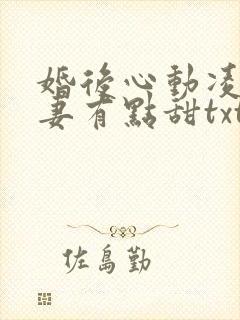 婚後心動凌
妻有點甜txt
佐島勤